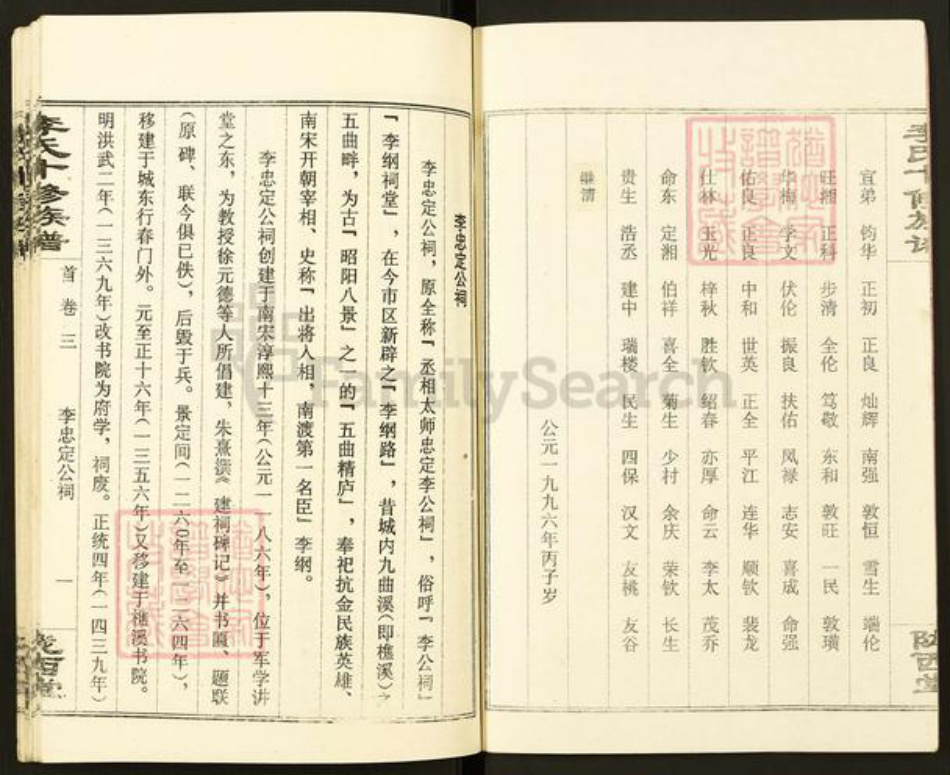 宜弟 钧华 正初 正良 灿辉 南强 敦恒 雪生 端伦
旺湘 正科 步清 全伦 笃敬 东和 敦旺 一民 敦璜
华梅 学文 伏伦 振良 扶佑 凤禄 志安 喜成 命强
佑良 正良 中和 世英 正全 平江 连华 顺钦 裴龙
仕林 玉光 梓秋 胜钦 绍春 亦厚 命云 李太 茂乔
命东 定湘 伯祥 喜全 菊生 少村 余庆 荣钦 长生
贵生 浩丞 建中 瑞楼 民生 四保 汉文 友桃 友谷
继清
公元一九九六年丙子岁
陇西堂
李忠定公祠
李忠定公祠，原全称「丞相太师忠定李公祠」，俗呼「李公祠」
「李纲祠堂」，在今市区新辟之「李纲路」，昔城内九曲溪(即樵溪)之
五曲畔，为古「昭阳八景」之一的「五曲精庐」，奉祀抗金民族英雄、
南宋开朝宰相、史称「出将入相，南渡第一名臣」李纲。
李忠定公祠创建于南宋淳熙十三年(公元一一八六年)，位于军学讲
堂之东，为教授徐元德等人所倡建，朱熹撰《建祠碑记》并书匾、题联
(原碑、联今俱已佚)，后毁于兵。景定间(一二六0年至一二六四年)，
移建于城东行春门外。元至正十六年(一三五六年)又移建于樵溪书院。
明洪武二年(一三六九年)改书院为府学，祠废。正统四年(一四三九年)
李氏十修族谱
首卷三
李忠定公祠
一
陇西堂
FamilySearch